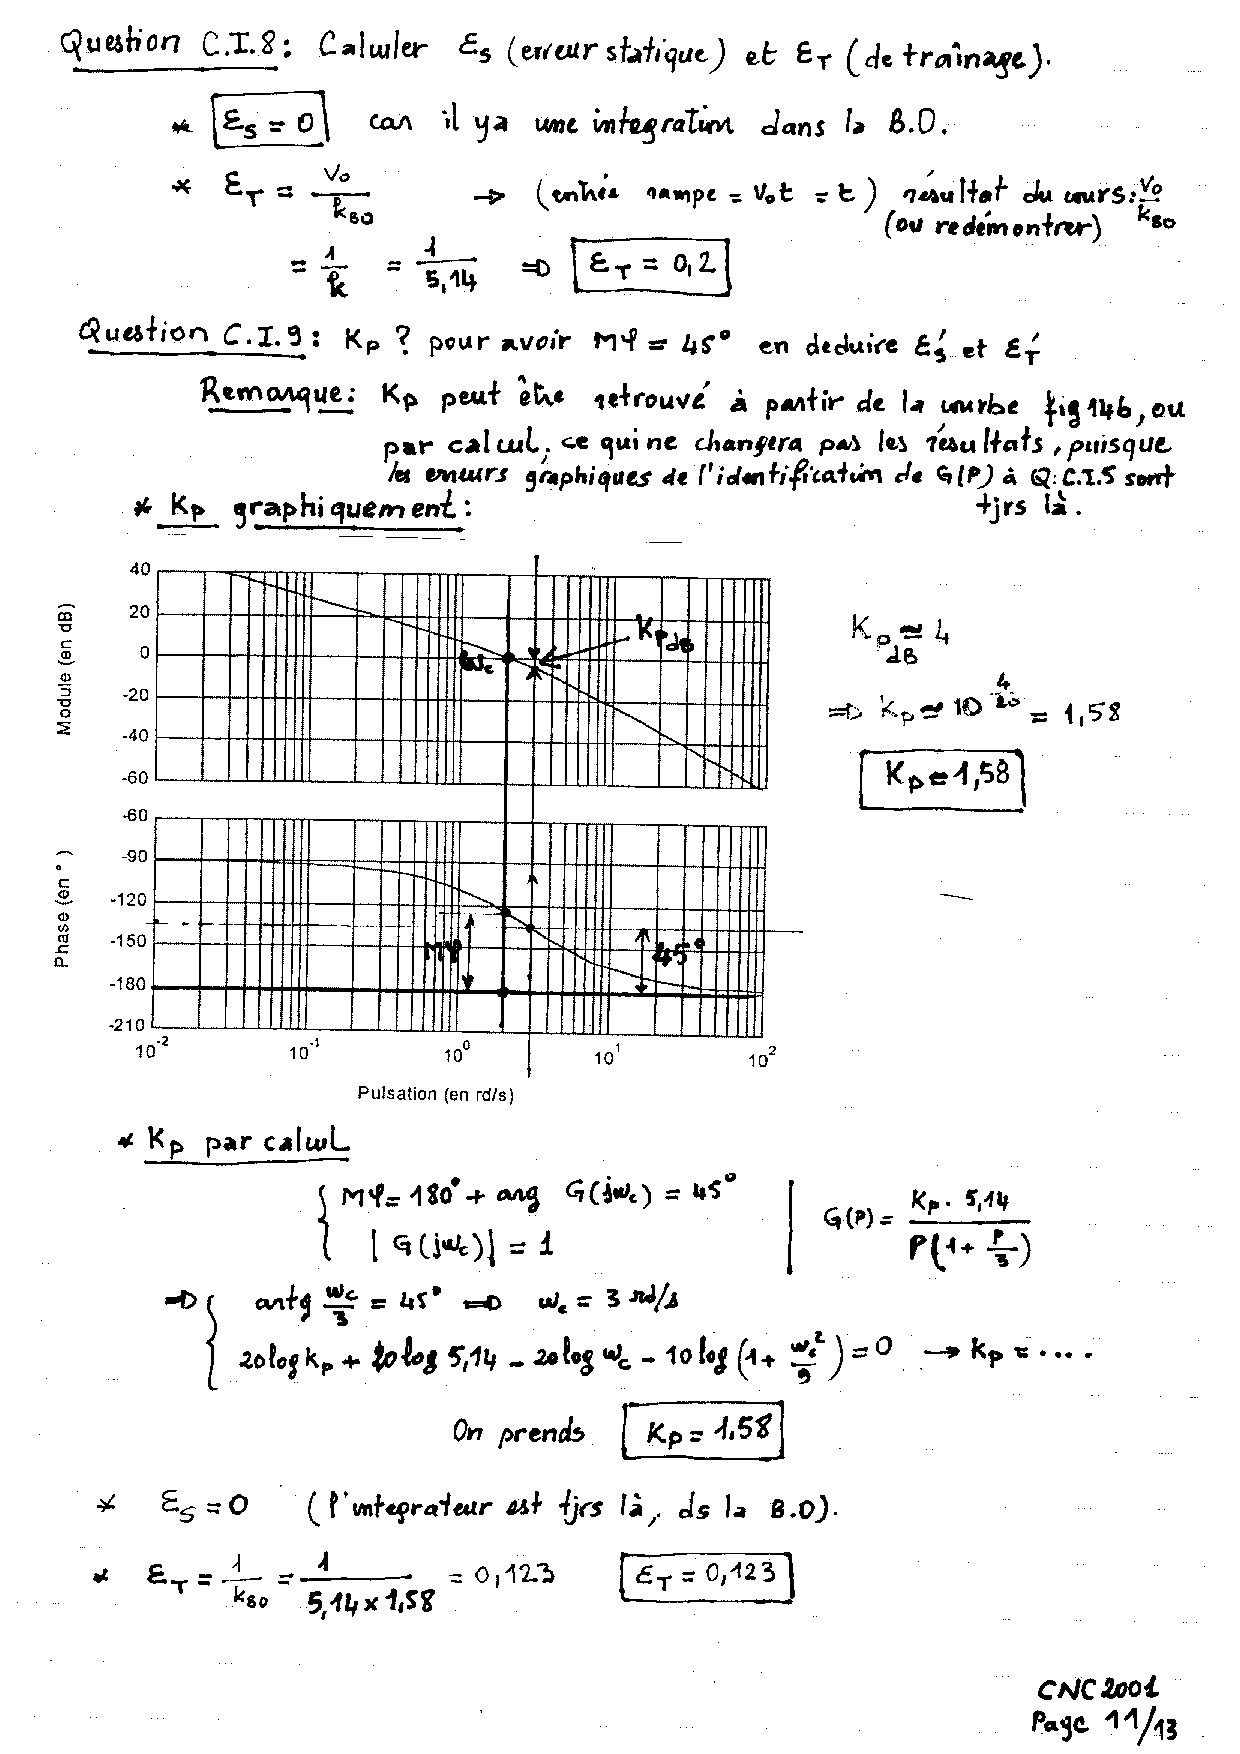 Question C.I.8: Calculer εs (erreur statique) et εT (de traînage).
* εs = 0 car il ya une integration dans la B.O.
* εT = V0/kBO → (entrée rampe = V0t = t) résultat du cours: V0/kBO
(ou redémontrer)
= 1/k = 1/5,14 ⇒ εT = 0,2
Question C.I.9: Kp ? pour avoir Mφ = 45° en deduire ε's et ε'T
Remarque: Kp peut être retrouvé à partir de la courbe fig 14b, ou
par calcul, ce qui ne changera pas les résultats, puisque
les erreurs graphiques de l'identification de G(P) à Q:C.I.5 sont
tjrs là.
* Kp graphiquement:
Module (en dB)
40
20
0
-20
-40
-60
ωc
KpdB
KpdB ≃ 4
⇒ Kp ≃ 10^(4/20) = 1,58
Kp = 1,58
Phase (en °)
-60
-90
-120
-150
-180
-210
Mφ
45°
10^-2 10^-1 10^0 10^1 10^2
Pulsation (en rd/s)
* Kp par calcul
{ Mφ = 180° + arg G(jωc) = 45°
| G(jωc)| = 1
G(P) = Kp. 5,14 / P(1 + P/3)
⇒ { arctg ωc/3 = 45° ⇒ ωc = 3 rd/s
20log kp + 20log 5,14 - 20log ωc - 10log (1 + ωc²/9) = 0 → Kp = ....
On prends Kp = 1,58
* εs = 0 (l'integrateur est tjrs là, ds la B.O).
* εT = 1/kBO = 1/5,14 x 1,58 = 0,123 εT = 0,123
CNC 2001
Page 11/13